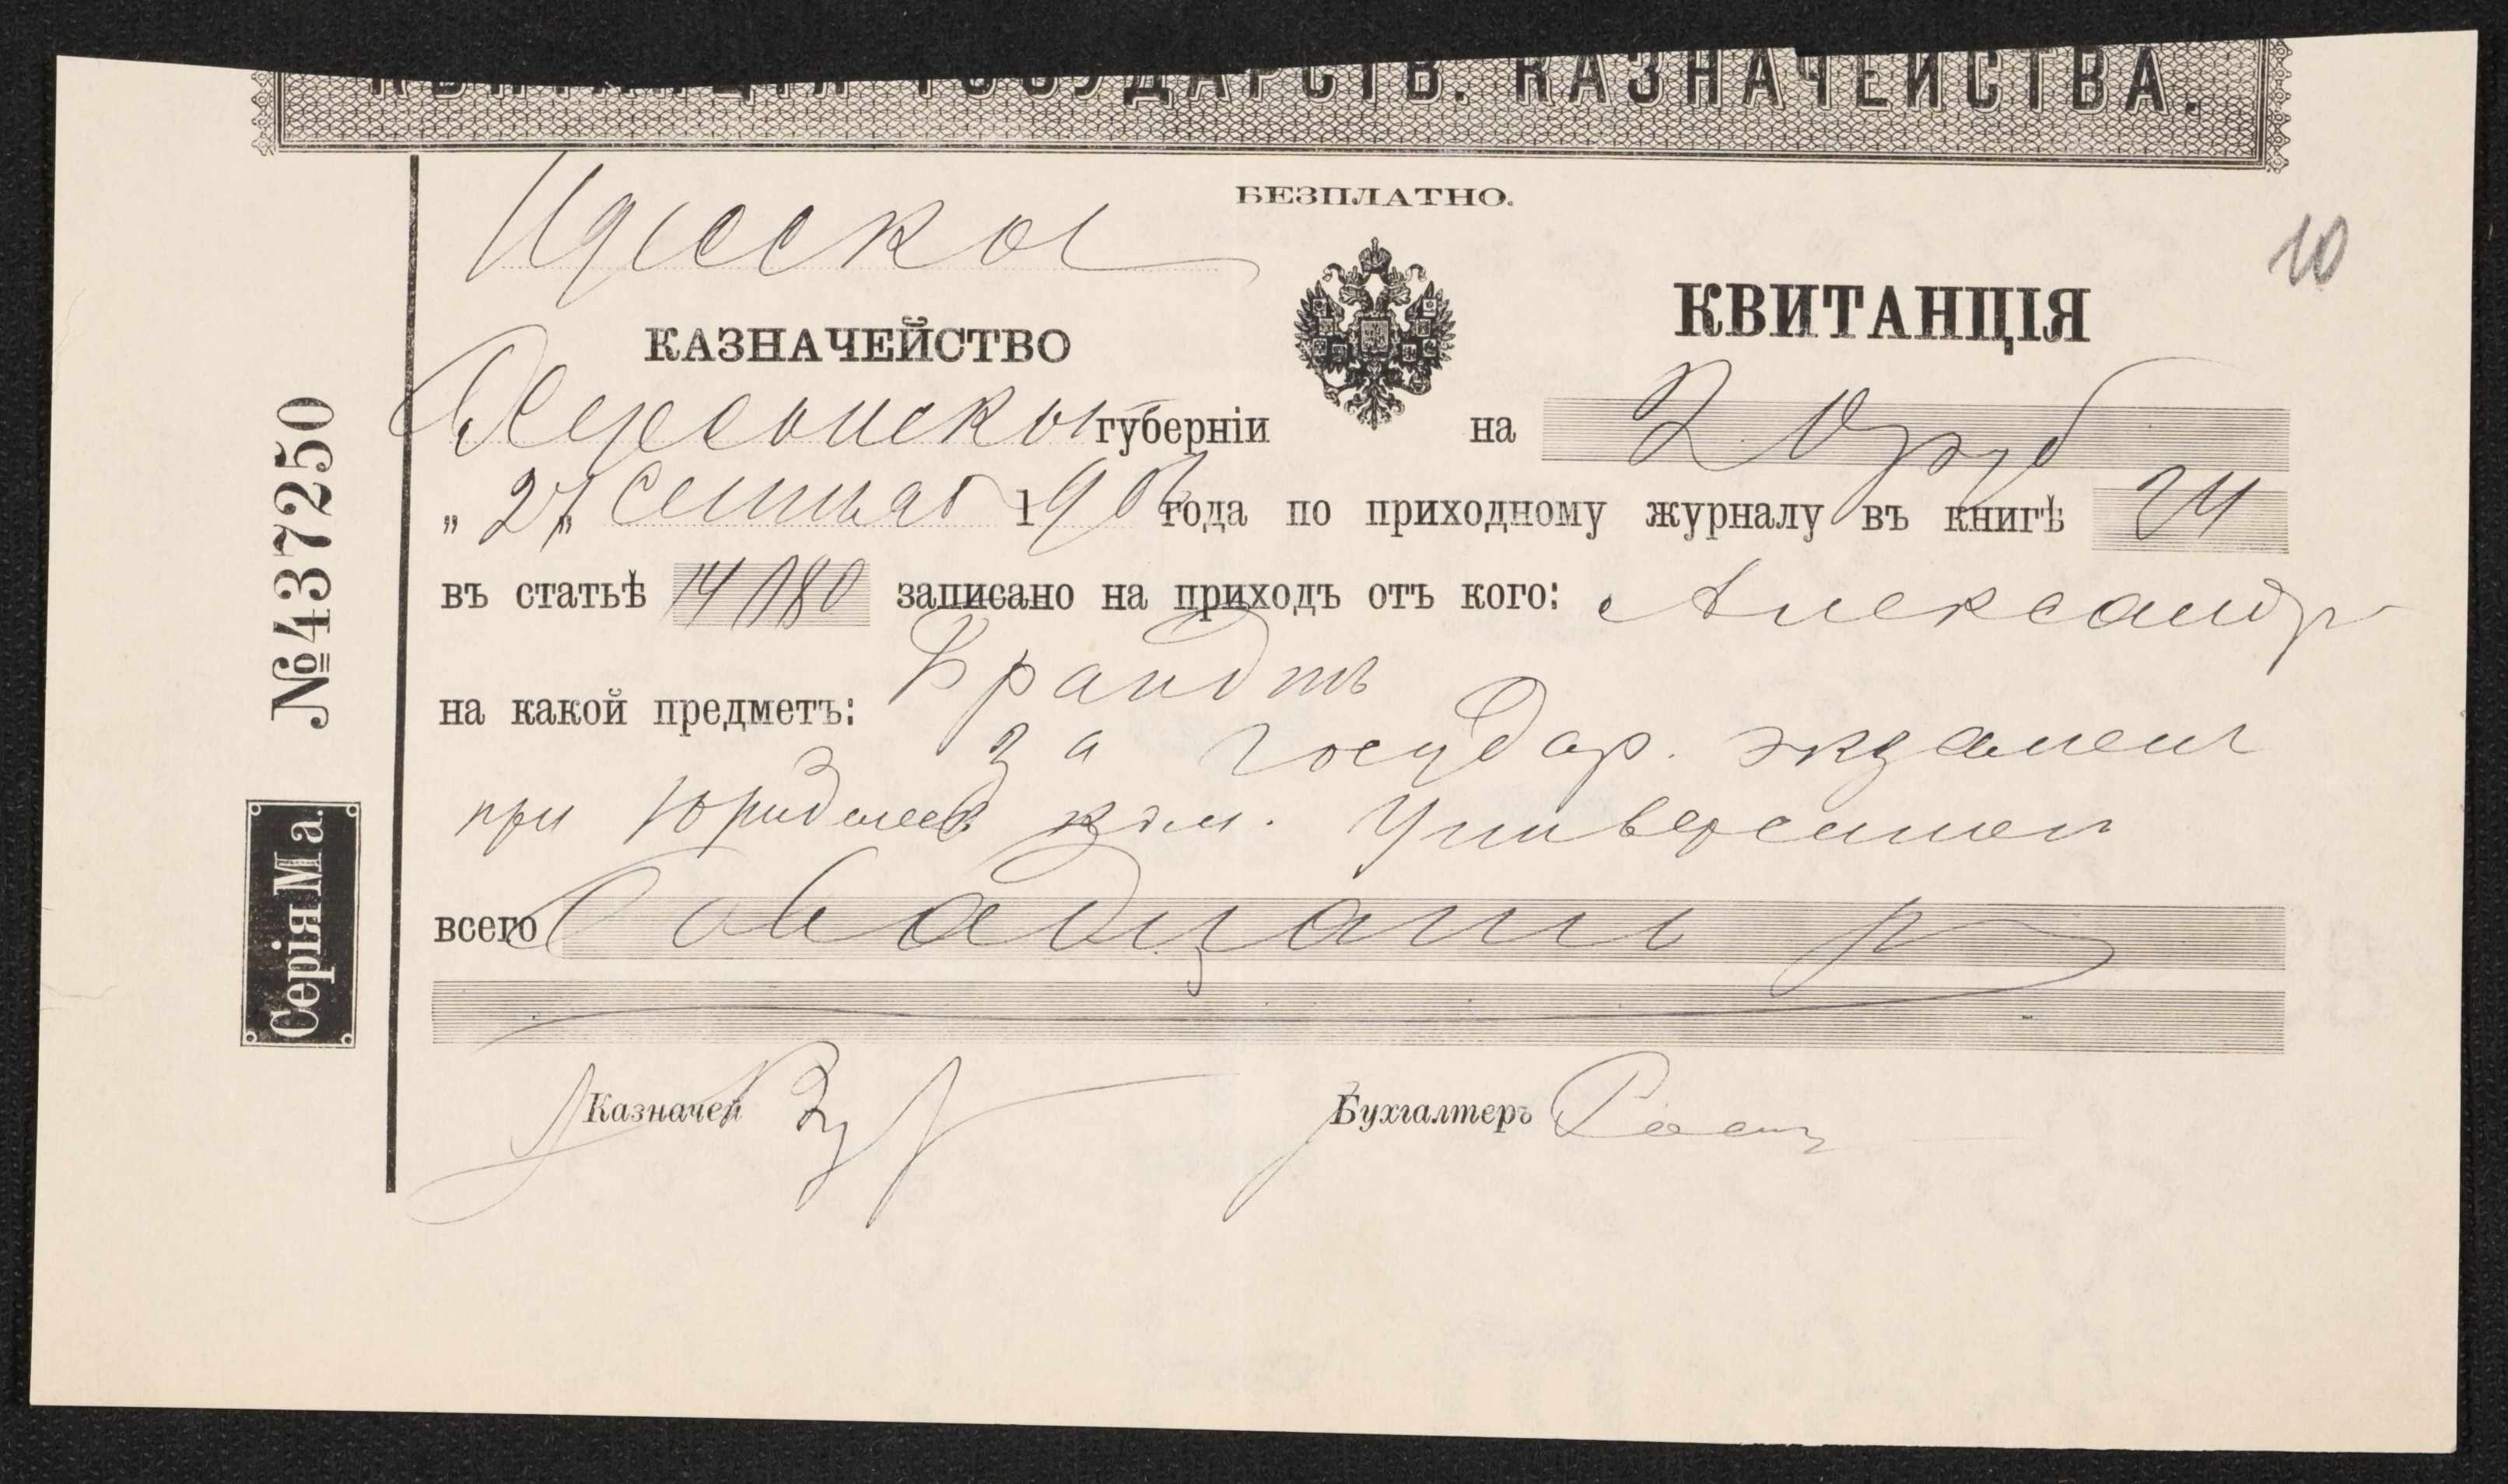 КВИТАНЦІЯ ГОСУДАРСТВ. КАЗНАЧЕЙСТВА.
БЕЗПЛАТНО.
10
КАЗНАЧЕЙСТВО
КВИТАНЦІЯ
Херсонской губерніи
на 20 руб
сентяб 190 года по приходному журналу въ книгѣ 24
въ статьѣ 14180 записано на приходъ отъ кого: Александр
Брандтъ
на какой предметъ:
за государ. экзамен
при Юридическ ком. Университет
всего Двадцать р
Казначей
Бухгалтеръ
№ 437250
Серія Ма.